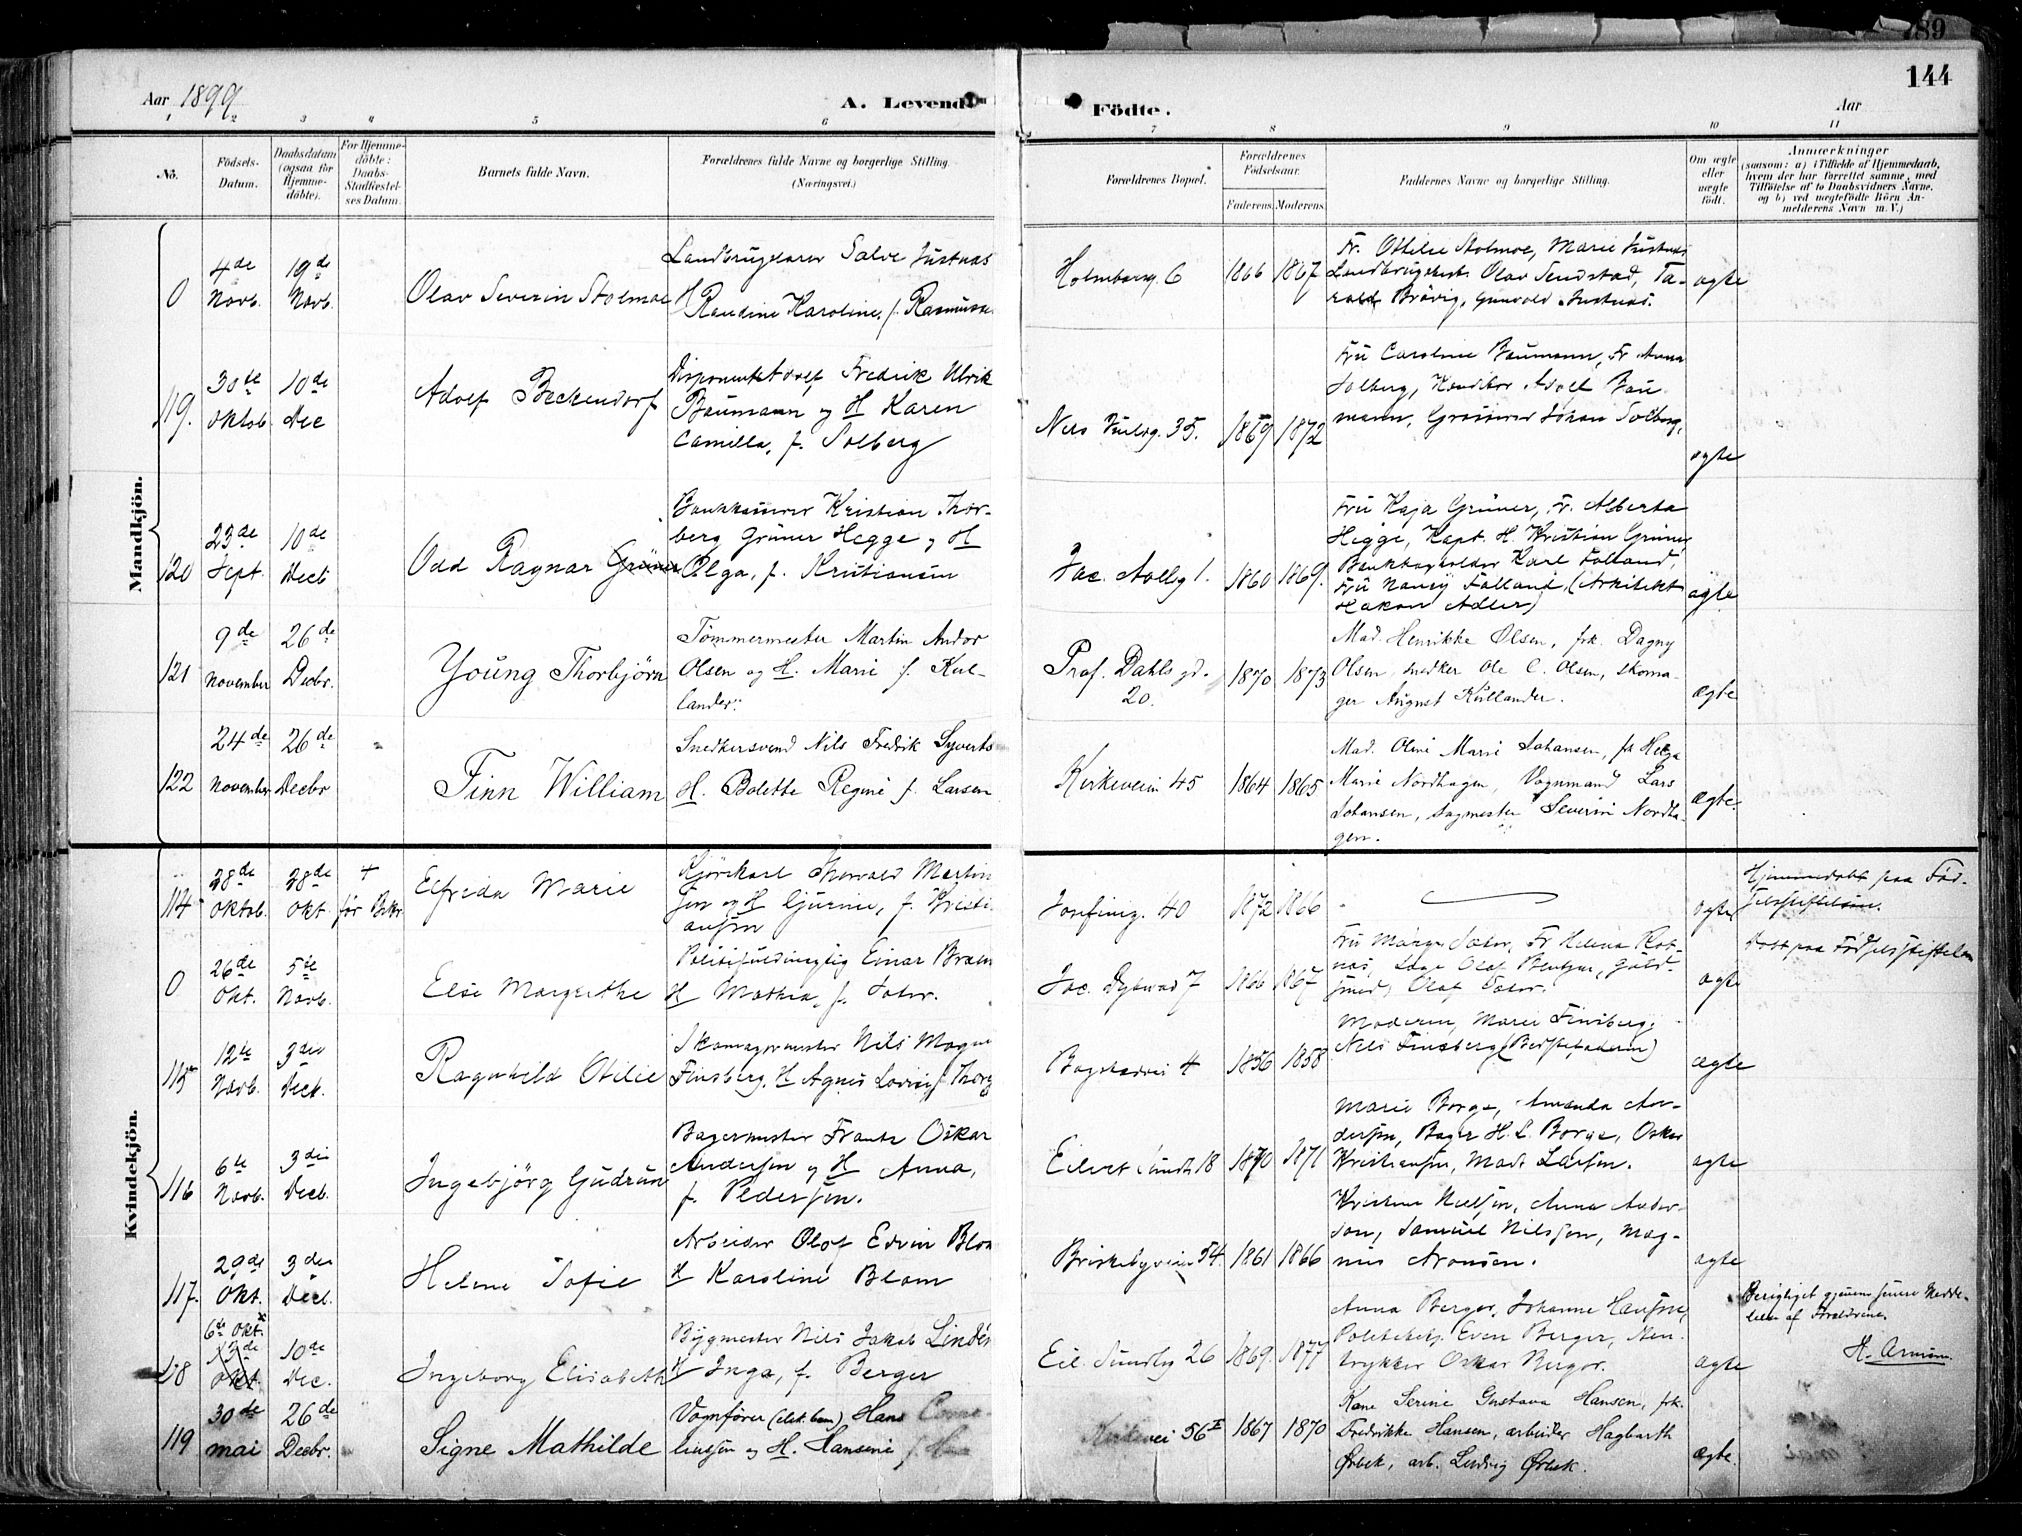 89
144
Aar 1899
A. Levende
Födte.
Aar
1 2 3 4 5 6 7 8 9 10 11
No.
Födsels-
Datum.
Daabsdatum
(ogsaa for
Hjemme-
döbte).
For Hjemme-
döbte:
Daabs-
Stadfæstel-
ses Datum.
Barnets fulde Navn.
Forældrenes fulde Navne og borgerlige Stilling.
(Næringsvei.)
Forældrenes Bopæl.
Forældrenes
Födselsaar.
Faderens Moderens
Faddernes Navne og borgerlige Stilling.
Om ægte
eller
uægte
födt.
Anmærkninger
(saasom: a) i Tilfælde af Hjemmedaab,
hvem der har forrettet samme, med
Tilföielse af to Daabsvidners Navne.
og b) ved uægtefödte Börn An-
melderens Navn m. V.)
Mandkjön.
0
4de
Novb.
19de
Novb.
Olav Severin Stolmoe
Salve Justnæs
H Randine Karoline, f. Rasmusse
Holmboeg. 6
1866 1867
Fr. Ottilie Stolmoe, Marie Justnæs
Olav Sendstad, Ta-
rald Brövig, Gunvald Justnæs.
ægte
119.
30te
Oktob.
10de
Dec
Adolf Beckendorf
Disponent Adolf Fredrik Ulrik
Baumann og H Karen
Camilla, f. Solberg
Nils Juelsg. 35.
1869 1872
Fru Caroline Baumann, Fr Anna
Solberg, Konditor Adolf Bau
mann, Grosserer Johan Solberg,
ægte
120
23de
Sept.
10de
Decb
Odd Ragnar Grüner
Bankkasserer Kristian Thor-
berg Grüner Hegge og H
Olga, f. Kristiansen
Jac. Aallsg 1.
1860 1869.
Fru Kaja Grüner, Fr. Alberta
Hegge, Kapt. H. Kristian Grüner
Bankbogholder Karl Falland,
Fru Nancy Falland, (Arkitekt
Hakon Adler)
ægte
121
9de
November
26de
Decbr.
Young Thorbjörn
Tömmermester Martin Andor
Olsen og H. Marie f. Kul-
lander.
Prof. Dahls gd.
20.
1870 1873
Mad. Henrikke Olsen, frk. Dagny
Olsen, snedker Ole C. Olsen, skoma-
ger August Kullander.
ægte
122
24de
November
26de
Decbr
Finn William
Snedkersvend Nils Fredrik Syverts
H. Bolette Regine f. Larsen
Kirkeveien 45
1864 1865
Mad. Oline Marie Johansen, frk Helga
Marie Nordhagen, Vognmand Lars
Johansen, sagmester Severin Nordha-
gen.
ægte.
Kvindekjön.
114
28de
Oktob.
28de
Okt.
+
för Bekr.
Elfrida Marie
Kjörekarl Thorvald Martin
sen og H Gurine, f. Kristi
ansen
Josefineg. 40
1872 1866
ægte
Hjemmedöbt paa Föd-
selsstiftelsen.
Döbt paa Födselsstiftelsen
0
26de
Okt.
5te
Novb.
Else Margrethe
Politifuldmægtig Einar
H Mathea, f. Sater.
Jac. Dybwad 7
1866 1867
Olaf Sater.
ægte
115
12te
Novb.
3die
Decb.
Ragnhild Otilie
Skomagermester Nils Magne
Finsberg, H Agnes Lovise f. Thorg
Bogstadvei 4
1856 1858
Moderen, Marie Finsberg,
Nils Finsberg (Bedstefaderen)
ægte
116
6te
Novb.
3die
Decb.
Ingebjörg Gudrun
Bagermester Frantz Oskar
Andersen og H Anna,
f. Pedersen.
Eilert Sundts 18
1870 1871
Marie Borge, Amanda An-
dersen, Bager H. L. Borge, Oskar
Kristiansen, Mads Larsen.
ægte
117.
29de
Okt.
3die
Decb.
Helene Sofie
Arbeider Olof Edvin Blom
H Karoline Blom
Briskebyveien 54.
1861 1866
Kristine Nielsen, Anna Ander-
son, Samuel Nilssen, Mag-
nus Aronsen.
ægte
118
6te Okt.
13de
Okt.
10de
Dec.
Ingeborg Elisabeth
Bygmester Nils Jakob Linder
H Inga, f. Berger
Eil. Sundtsg 26
1869. 1877
Anna Berger, Johanne Hansen,
Politibetj. Even Berger, Sten-
trykker Oskar Berger.
ægte
Berigtiget gjennem senere Medde-
lelse af Forældrene.
119
30de
mai
26de
Decbr.
Signe Mathilde
Vognförer (elek. ban) Hans Corne-
liussen og H. Hansine f.
Kirkevei 56 I
1867 1870
Kone Serine Gustava Hansen, frk.
Fredrikke Hansen, arbeider Hagbarth
Ørbek, arb. Ludvig Ørbek.
ægte.